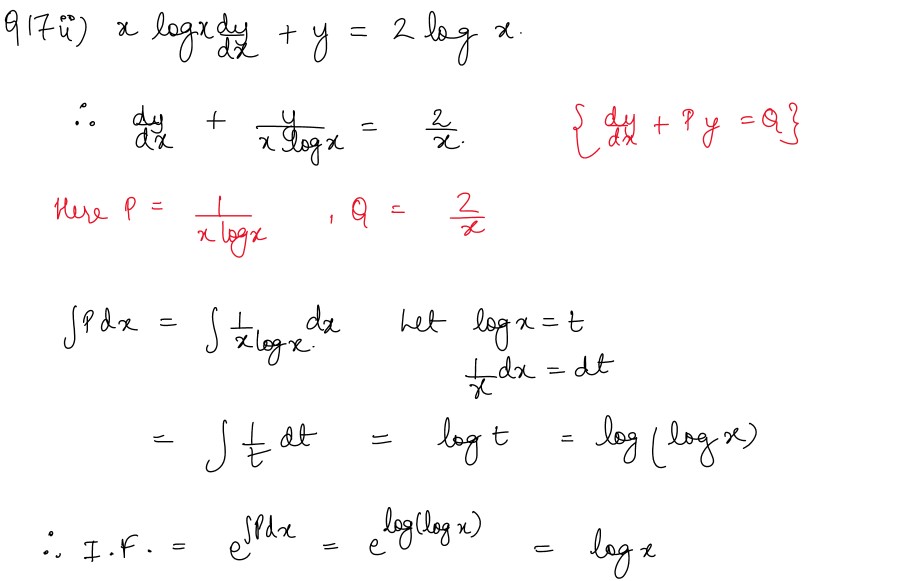 Q17 ii) x log x dy/dx + y = 2 log x.
∴ dy/dx + y/(x log x) = 2/x. { dy/dx + P y = Q }
Here P = 1/(x log x) , Q = 2/x
∫P dx = ∫ 1/(x log x) dx Let log x = t
1/x dx = dt
= ∫ 1/t dt = log t = log (log x)
∴ I.F. = e^(∫Pdx) = e^(log(log x)) = log x